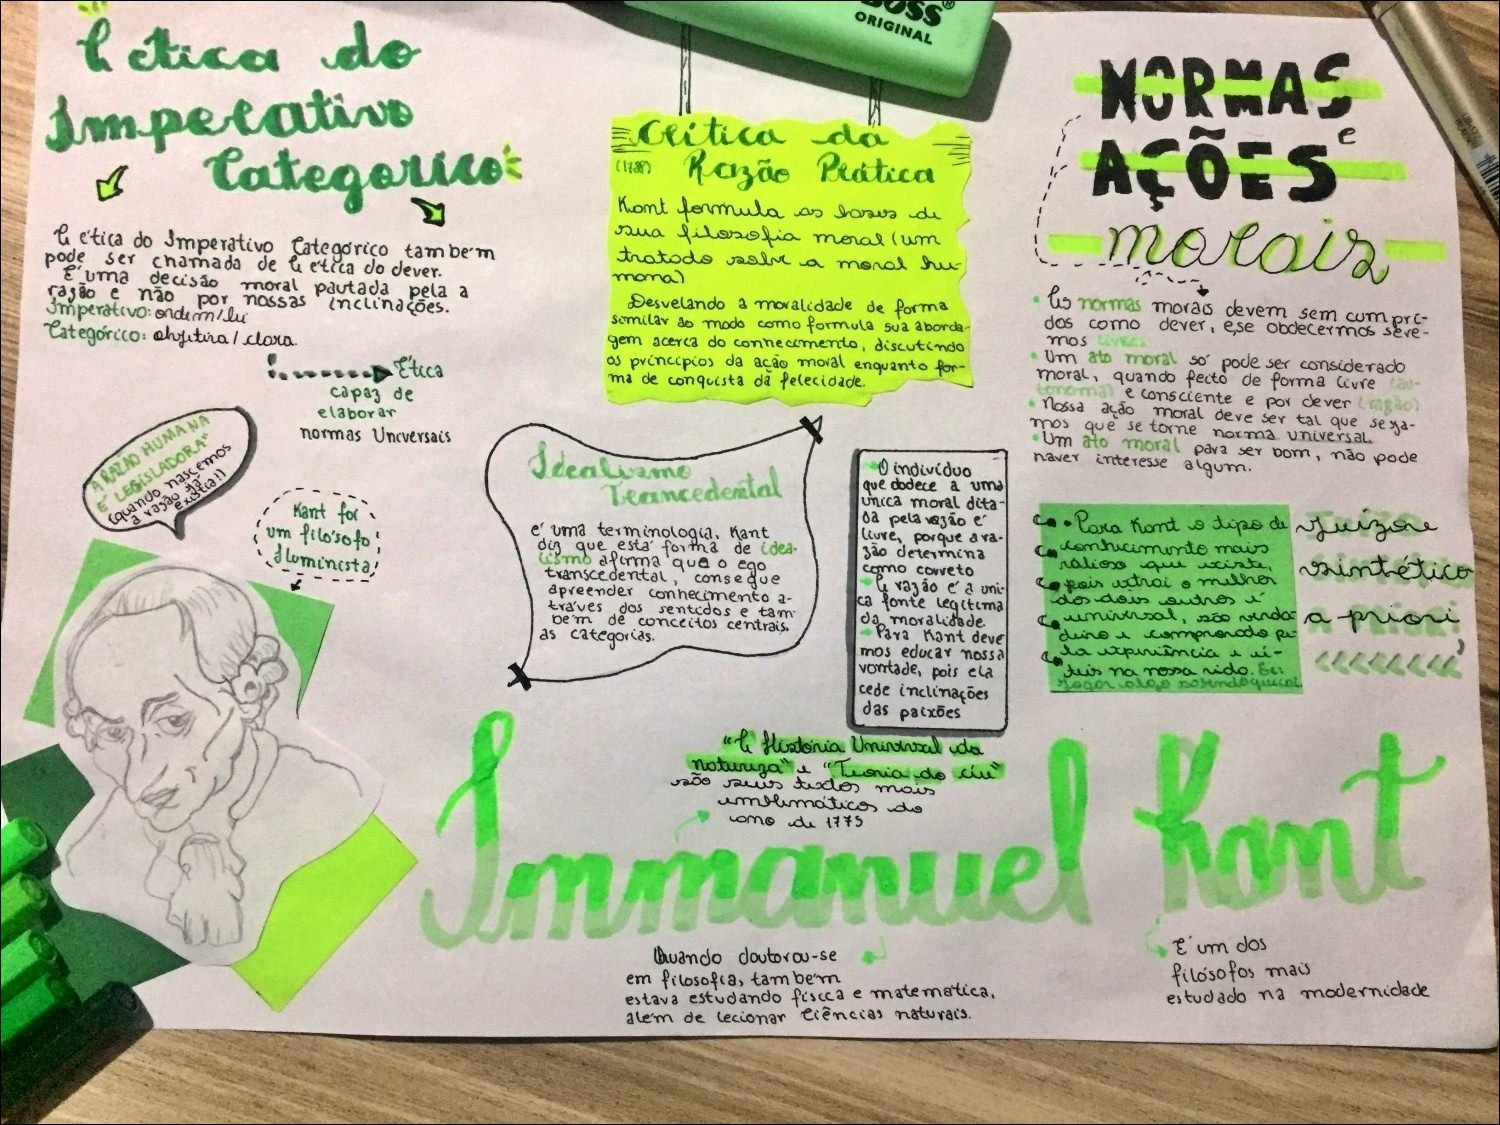 A etica do
Imperativo
Categorico
A ética do Imperativo Categórico também
pode ser chamada de A etica do dever.
É uma decisão moral pautada pela a
razão e não por nossas inclinações.
Imperativo: ordem/lei
Categórico: objitiva/clara.
Ética
capaz de
elaborar
normas Universais
A RAZÃO HUMANA
É LEGISLADORA"
(quando nascemos
a razão já
existia!!)
Kant foi
um filósofo
Iluminista
BOSS®
ORIGINAL
Crítica da
(1788) Razão Prática
Kant formula as bases de
sua filosofia moral (um
tratado sobre a moral hu-
mana)
Desvelando a moralidade de forma
similar ao modo como formula sua aborda-
gem acerca do conhecimento, discutindo
os princípios da ação moral enquanto for-
ma de conquista da felecidade.
Idealismo
Trancedental
é uma terminologia, Kant
diz que esta forma de idea-
lismo afirma que o ego
transcedental, consegue
apreender conhecimento a-
través dos sentidos e tam-
bém de conceitos centrais,
as categorias.
O indivíduo
que obdece a uma
única moral dita-
da pela razão é
livre, porque a ra-
zão determina
como correto
A razão é a uni-
ca fonte legítima
da moralidade
Para Kant deve
mos educar nossa
vontade, pois ela
cede inclinações
das paixões
NORMAS
e
AÇÕES
morais
• As normas morais devem sem cumpri-
dos como dever, e se obdecermos sere-
mos livres
• Um ato moral só pode ser considerado
moral, quando feito de forma livre (au-
tonoma) e consciente e por dever (razão)
• Nossa ação moral deve ser tal que seja-
mos que se torne norma universal
• Um ato moral para ser bom, não pode
haver interesse algum.
• Para Kant o tipo de
conhecimento mais
valioso que existe,
pois extrai o melhor
dos dois outros é
universal, são verda-
deiro e comprovado pe-
la experiência e ú-
teis na nossa vida.
Juízore
sintético
a priori
"A História Universal da
natureza" e "Teoria do céu"
são seus textos mais
emblemáticos do
ano de 1775
Immanuel Kant
Quando doutorou-se
em filosofia, também
estava estudando física e matematica,
além de lecionar Ciências naturais.
É um dos
filósofos mais
estudado na modernidade